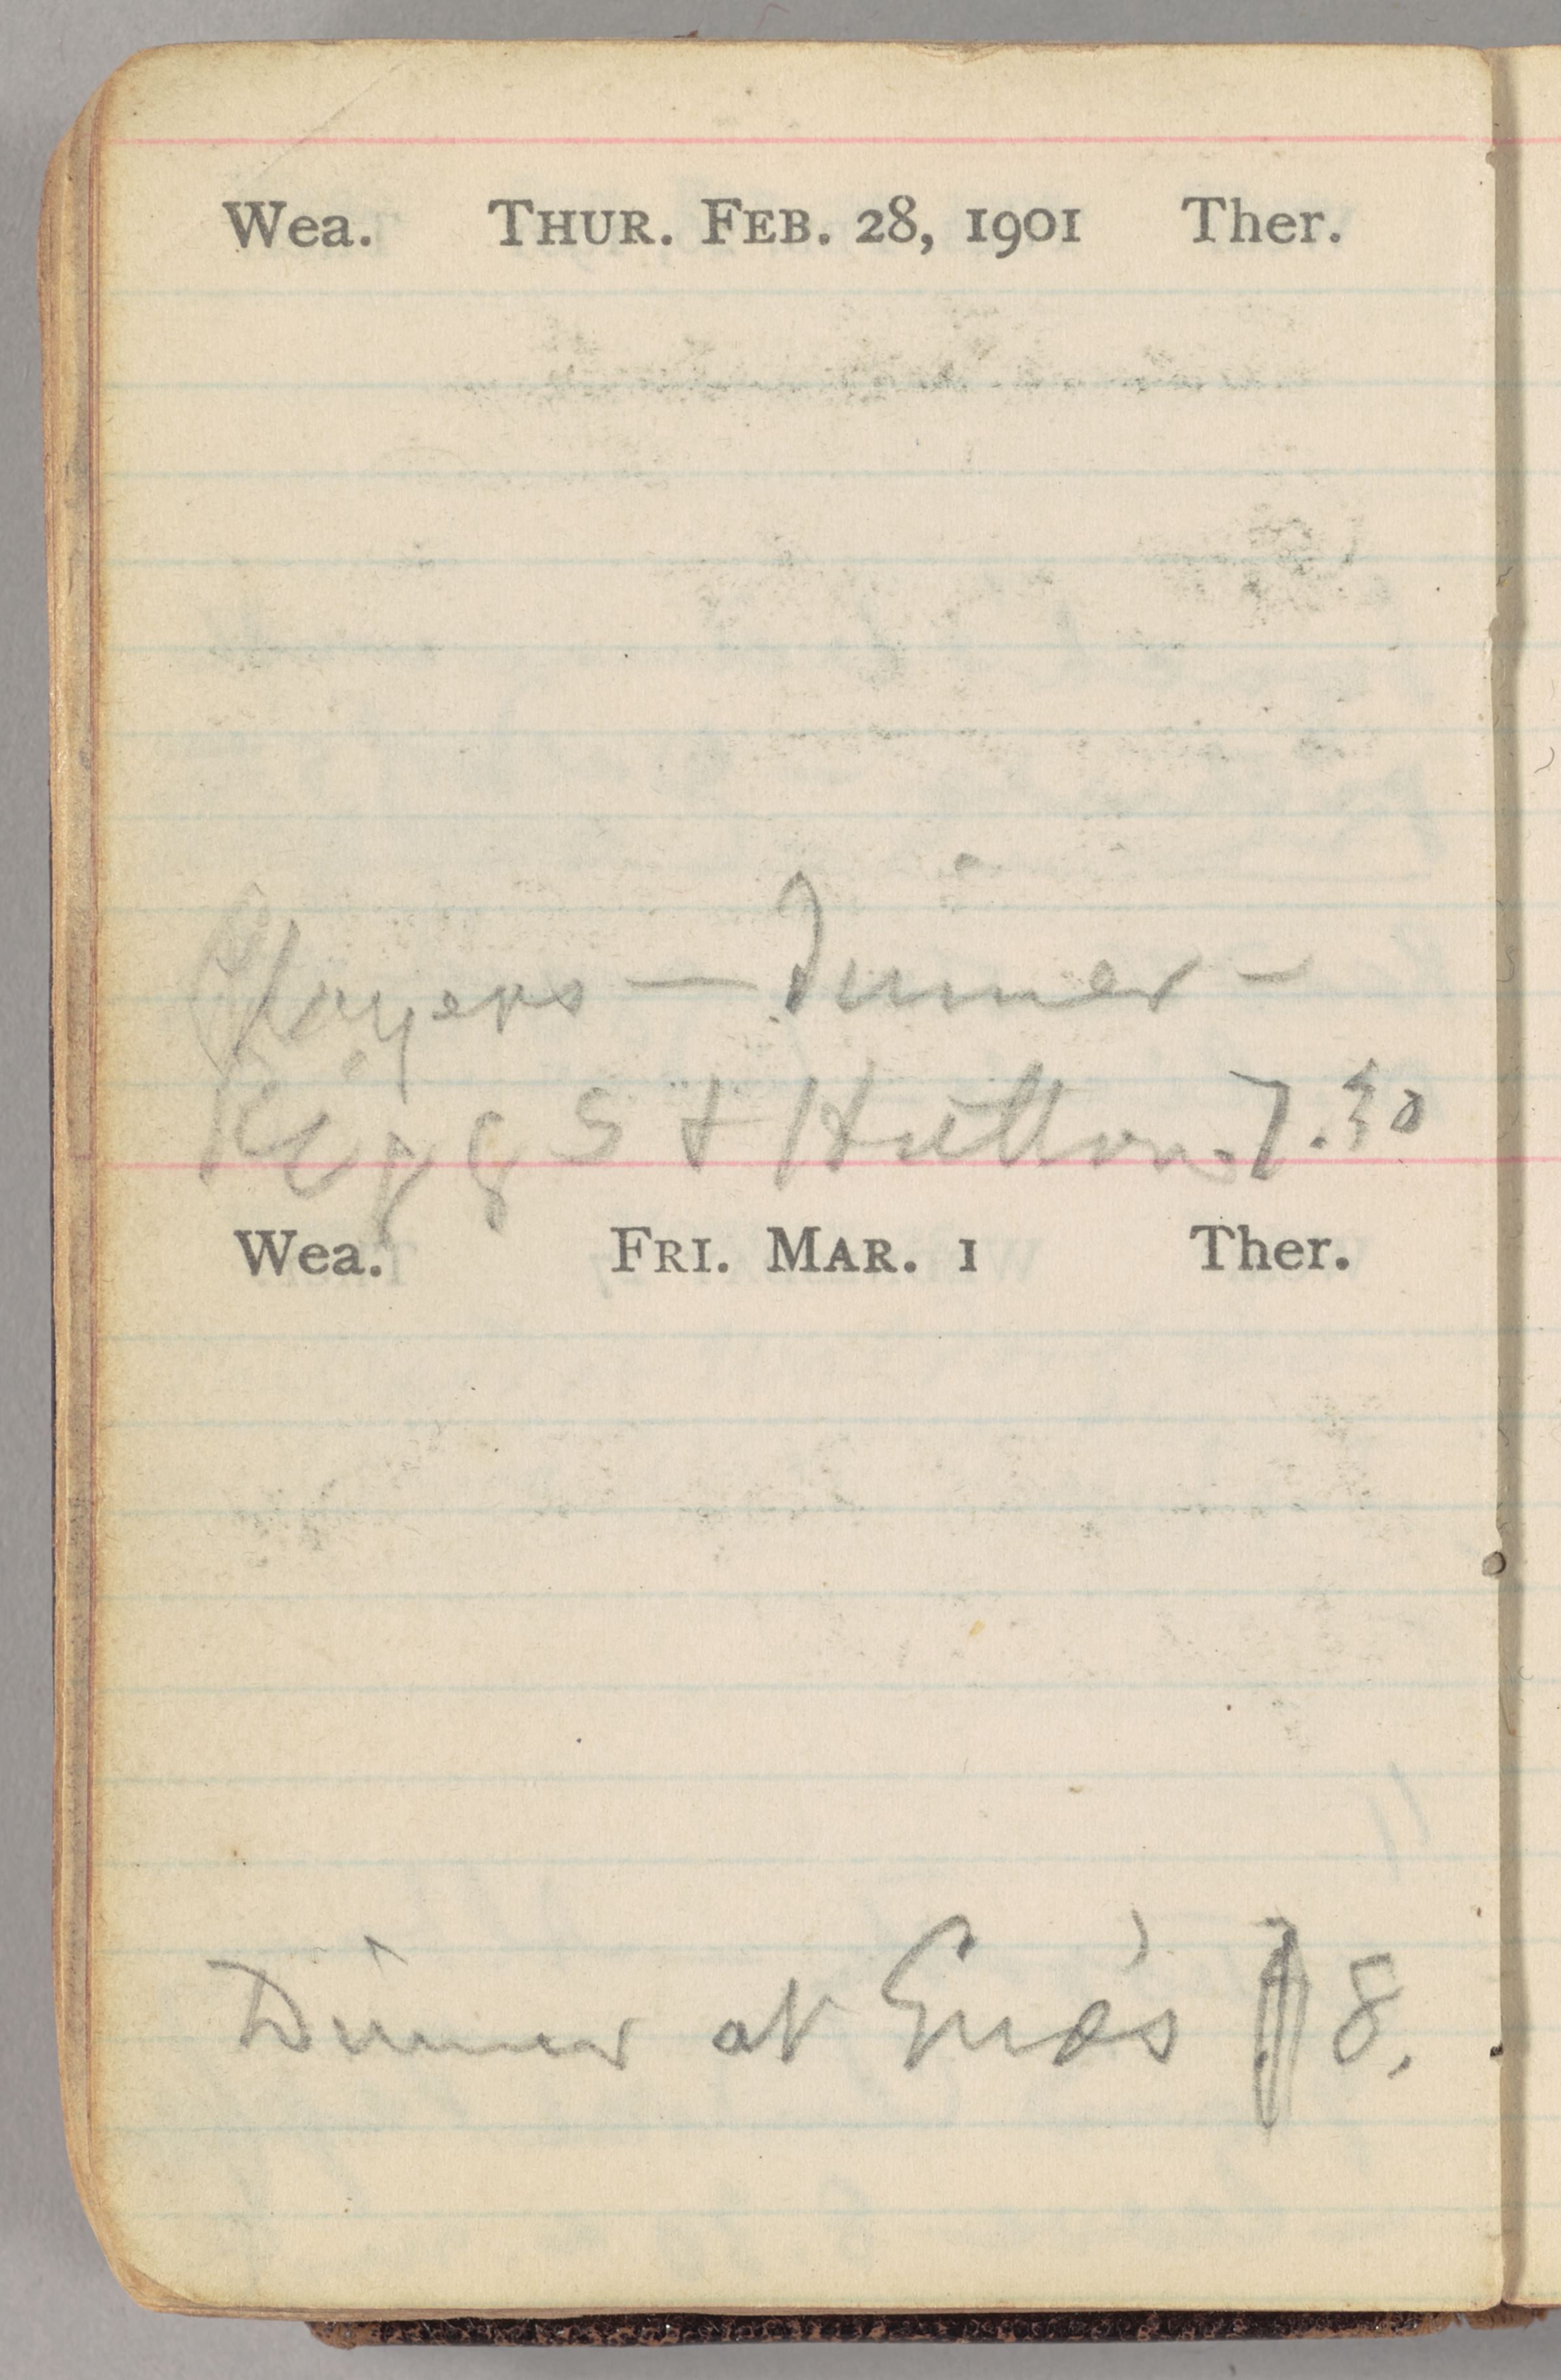 Wea. THUR. FEB. 28, 1901 Ther.
Players — Dinner —
Riggs + Hutton. 7.30
Wea. FRI. MAR. 1 Ther.
Dinner at 8.